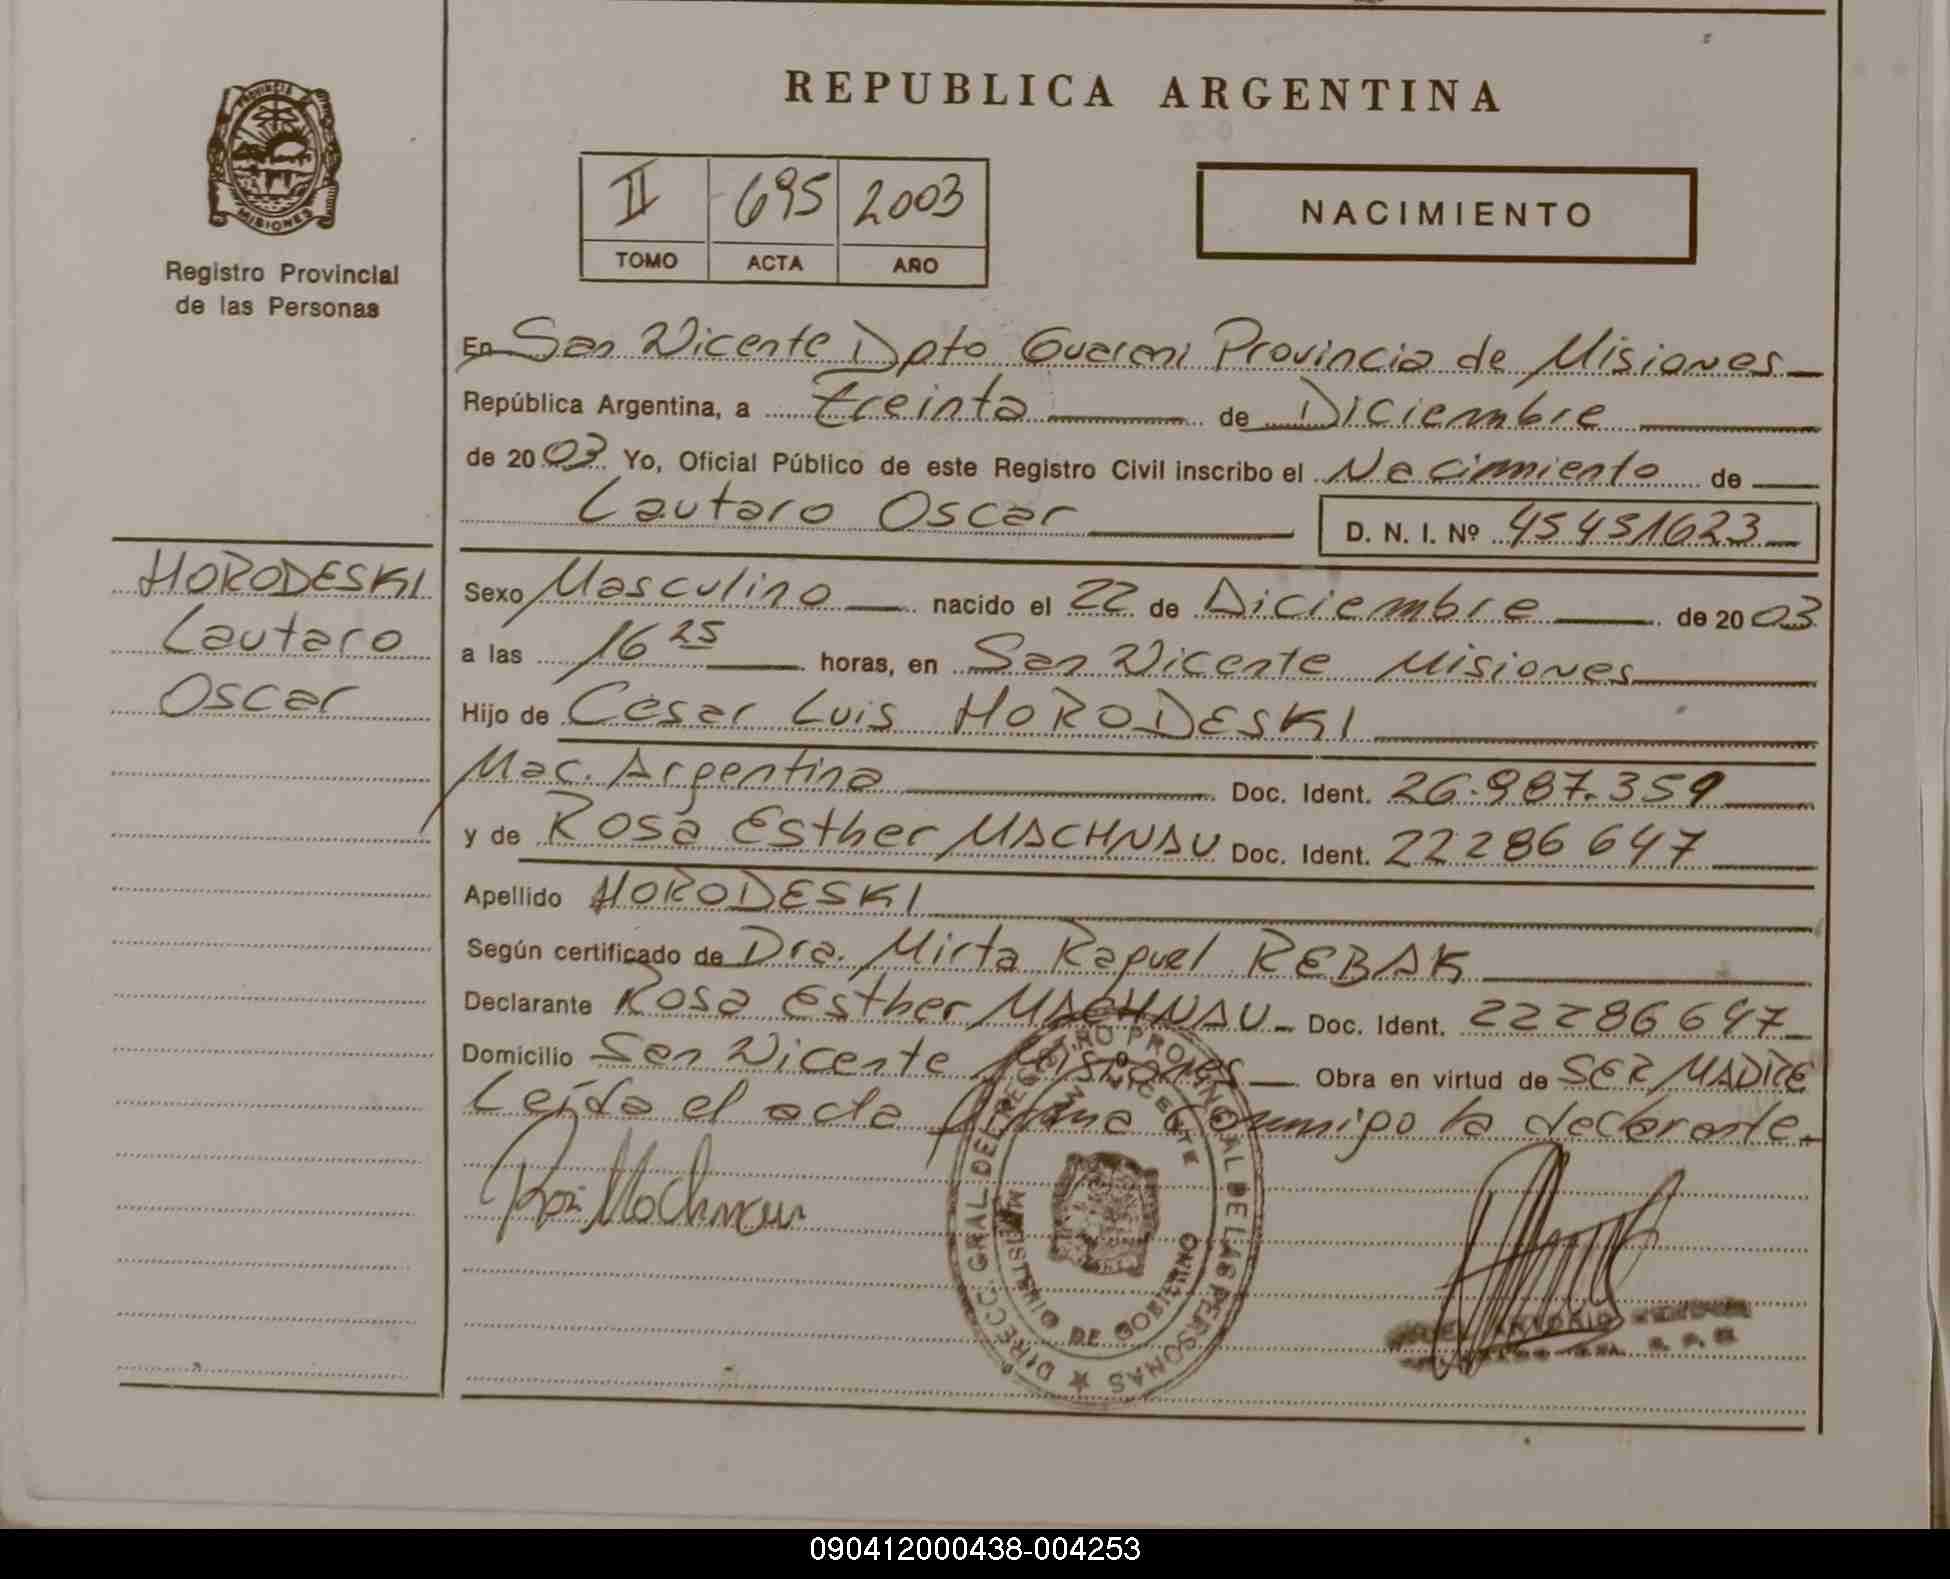 REPUBLICA ARGENTINA
PROVINCIA
MISIONES
Registro Provincial
de las Personas
II 695 2003
TOMO ACTA AÑO
NACIMIENTO
En San Vicente Dpto Guarani Provincia de Misiones
República Argentina, a treinta de Diciembre
de 2003 Yo, Oficial Público de este Registro Civil inscribo el Nacimiento de
Lautaro Oscar D. N. I. Nº 45451623
HORODESKI
Lautaro
Oscar
Sexo Masculino nacido el 22 de Diciembre de 2003
a las 16 25 horas, en San Vicente Misiones
Hijo de Cesar Luis HORODESKI
Nac. Argentina Doc. Ident. 26.987.359
y de Rosa Esther MACHNAU Doc. Ident. 22286647
Apellido HORODESKI
Según certificado de Dra. Mirta Raquel REBAK
Declarante Rosa Esther MACHNAU Doc. Ident. 22286647
Domicilio San Vicente Misiones Obra en virtud de SER MADRE
Leída el acta firma conmigo la declarante.
Rosa Machnau
DIRECC. GRAL. DEL REGISTRO PROVINCIAL DE LAS PERSONAS
SAN VICENTE
MINISTERIO DE GOBIERNO
ANTONIO
090412000438-004253